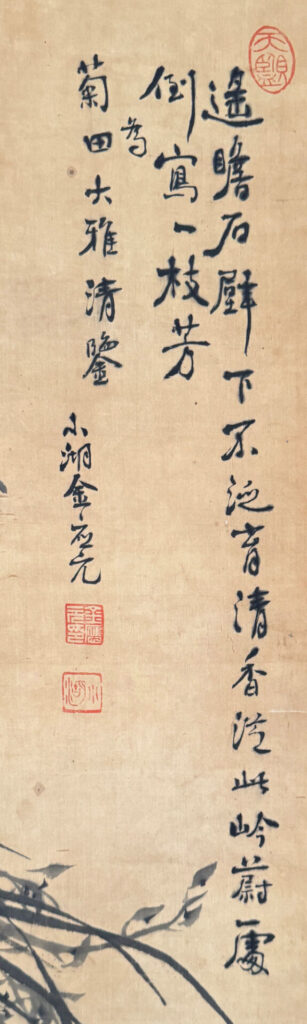 遙瞻石壁下不泛有清香從此岒蔚處
倒寫一枝芳
為
菊田大雅清鑒
小湖金應元
小湖